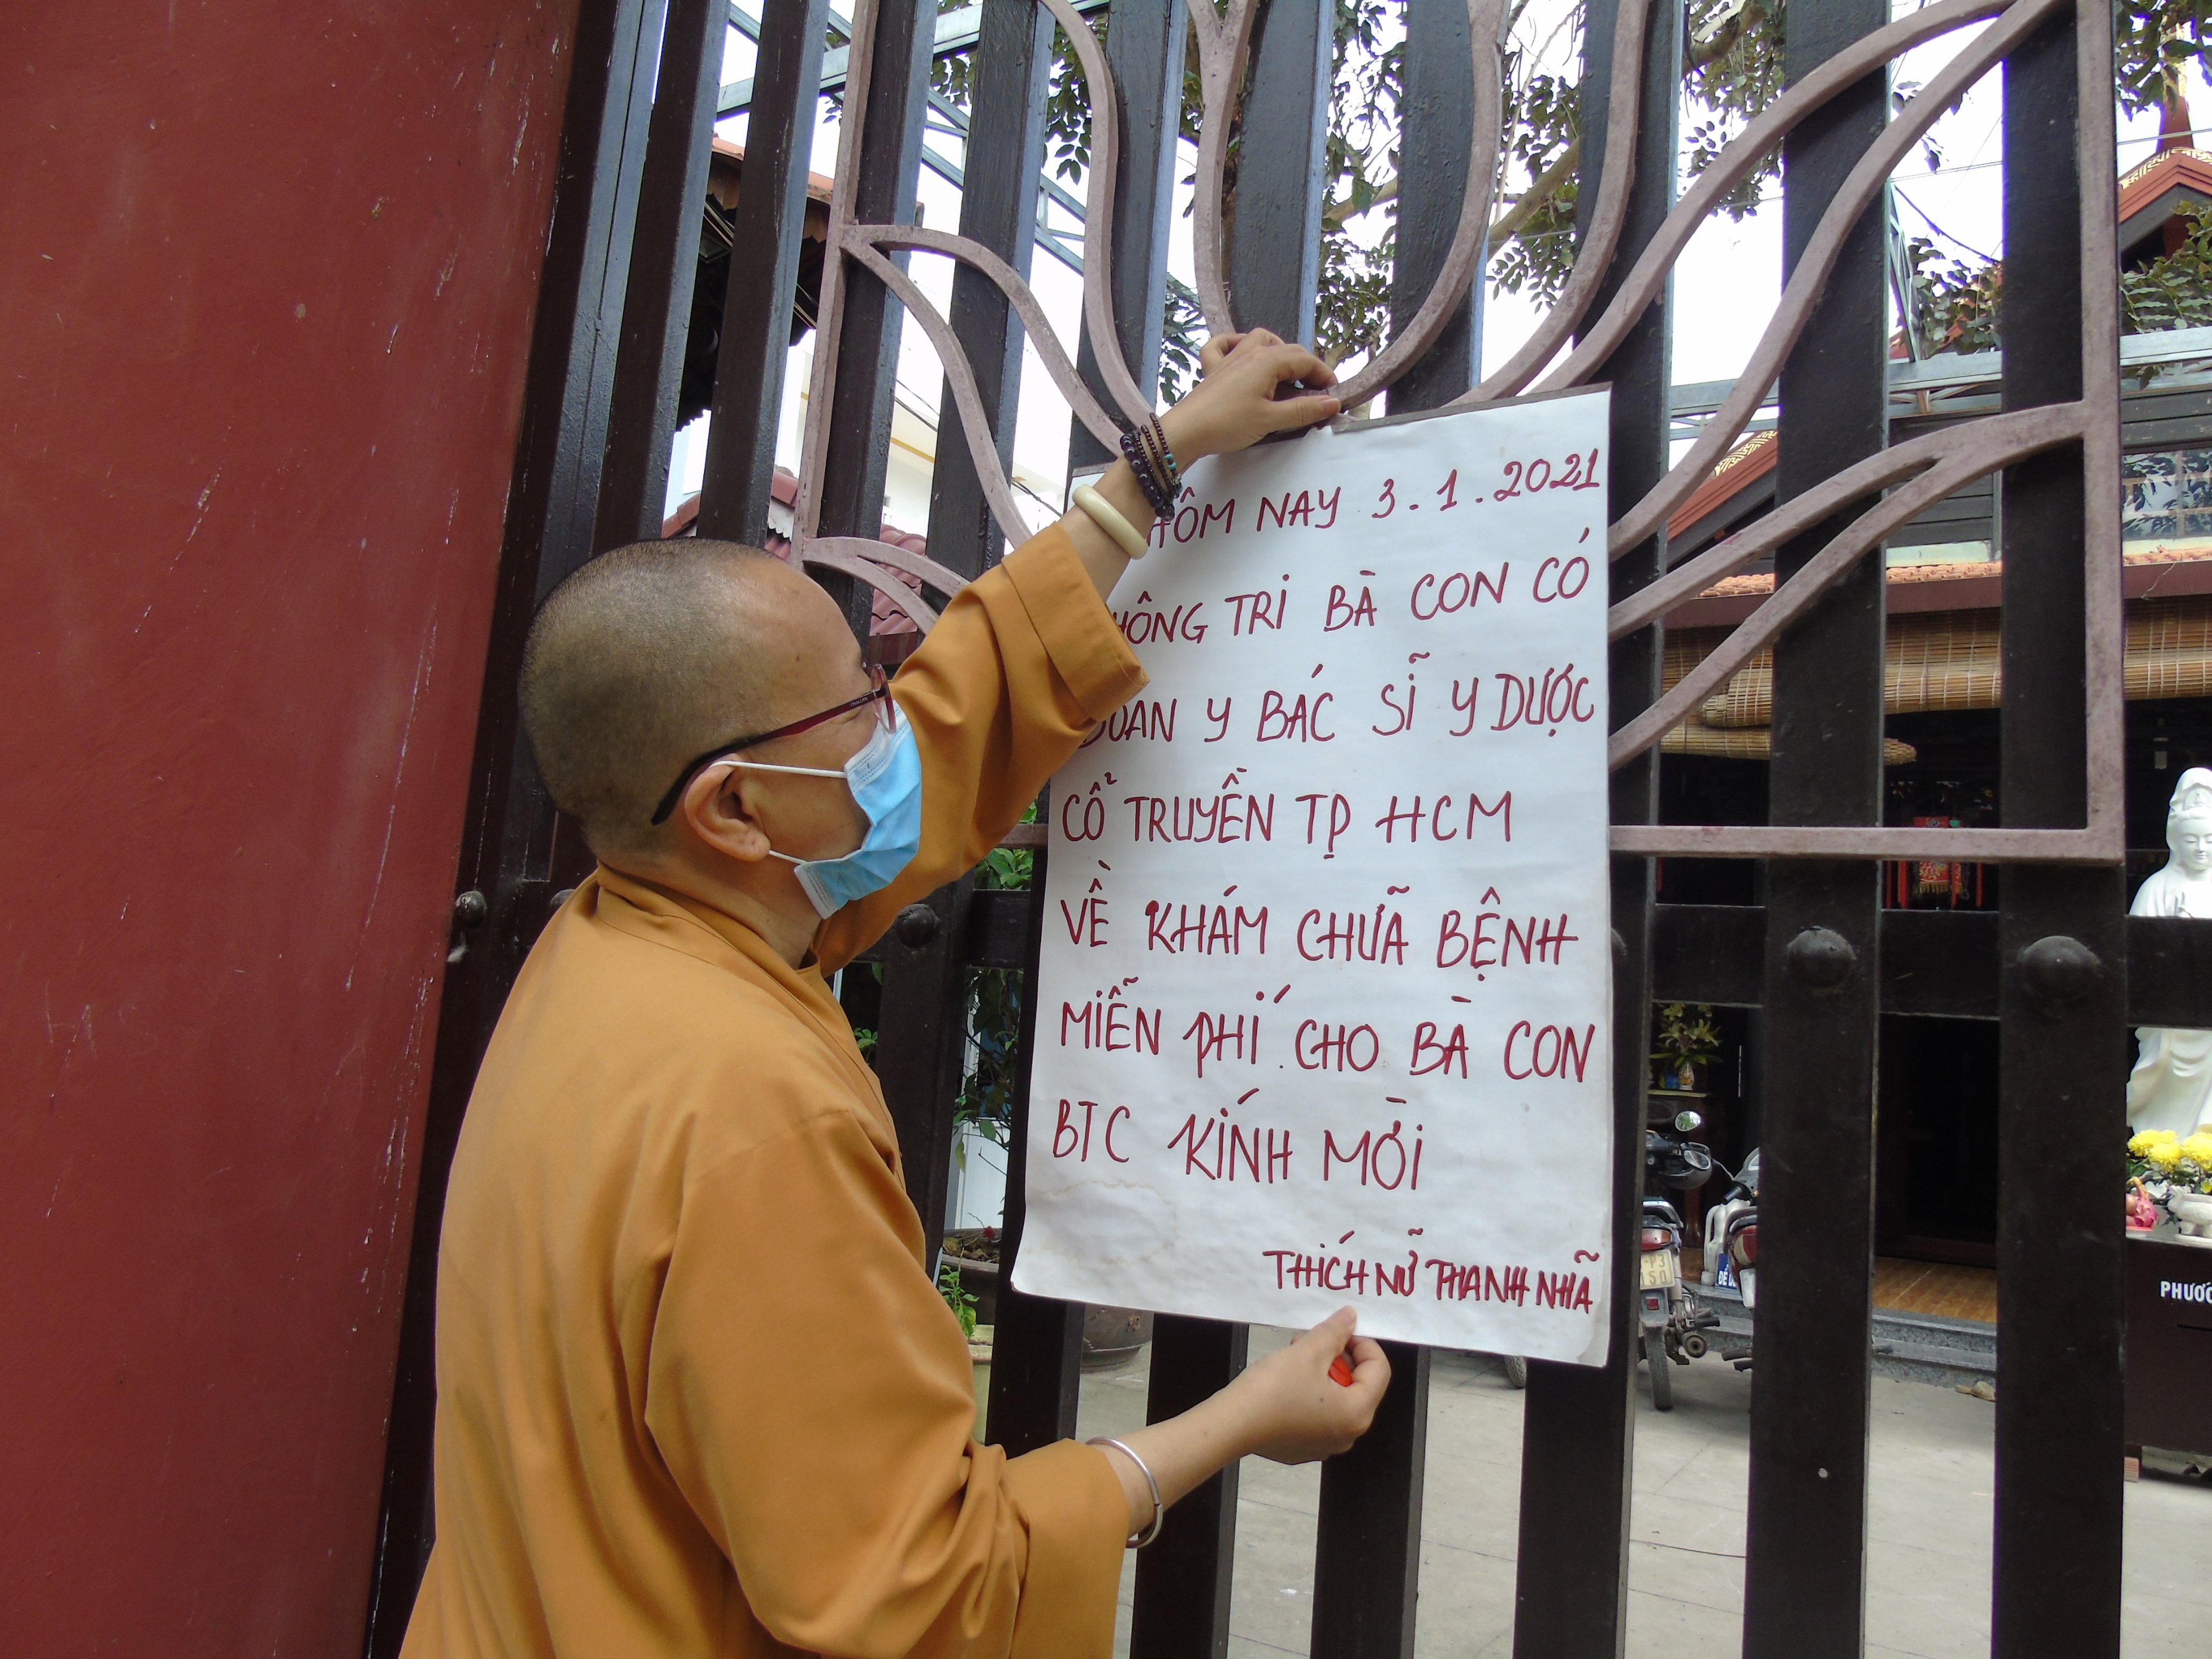 HÔM NAY 3.1.2021
THÔNG TRI BÀ CON CÓ
ĐOAN Y BÁC SĨ Y DƯỢC
CỔ TRUYỀN TP HCM
VỀ KHÁM CHƯÃ BỆNH
MIỄN PHÍ CHO BÀ CON
BTC KÍNH MỜI
THÍCH NỮ THANH NHÃ
PHƯỚC